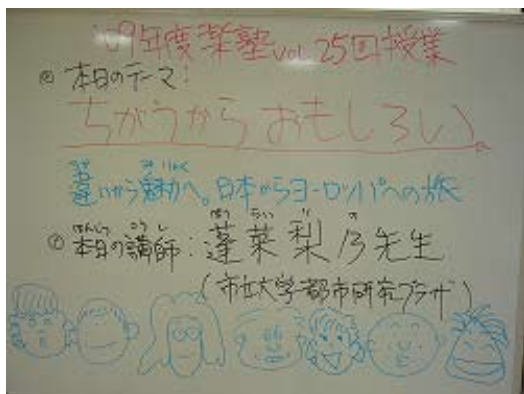 '09年度楽塾vol.25回授業
◎本日のテーマ:
ちがうからおもしろい。
違いから魅力へ。日本からヨーロッパへの旅
◎本日の講師:蓬莱梨乃先生
(市立大学都市研究プラザ)